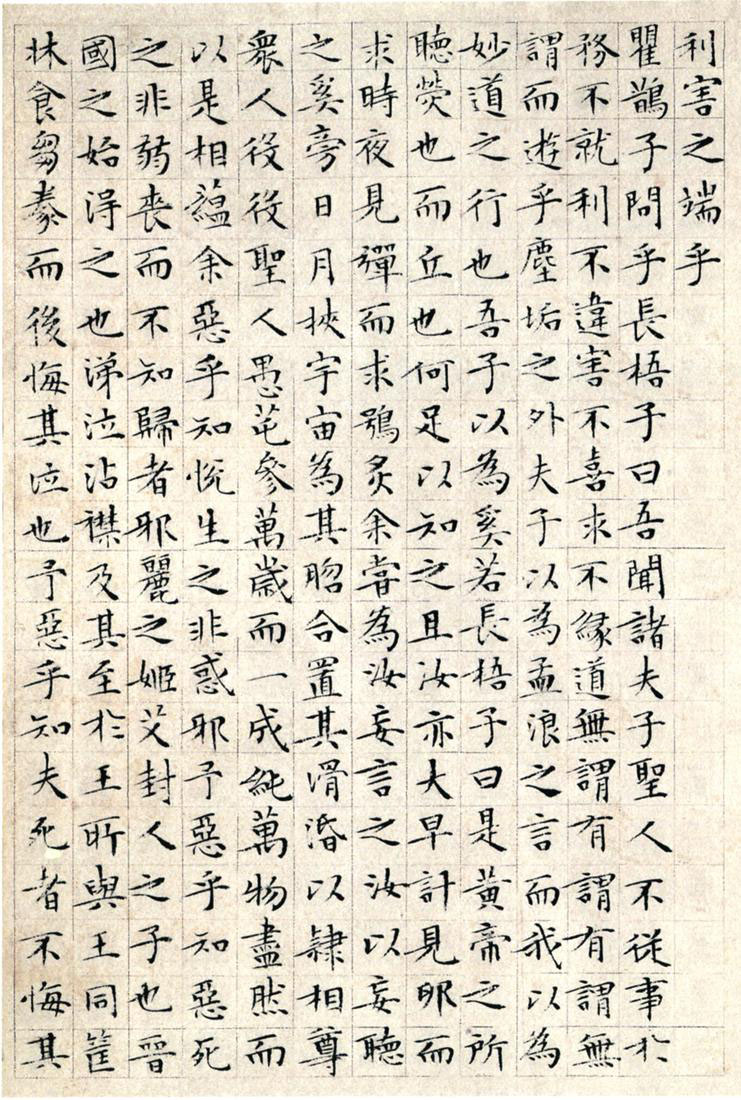 利害之端乎
瞿鵲子問乎長梧子曰吾聞諸夫子聖人不從事於
務不就利不違害不喜求不緣道無謂有謂有謂無
謂而遊乎塵垢之外夫子以為孟浪之言而我以為
妙道之行也吾子以為奚若長梧子曰是黃帝之所
聽熒也而丘也何足以知之且汝亦大早計見卵而
求時夜見彈而求鴞炙余嘗為汝妄言之汝以妄聽
之奚旁日月挾宇宙為其脗合置其滑涽以隸相尊
衆人役役聖人愚芚參萬歲而一成純萬物盡然而
以是相蘊余惡乎知悅生之非惑邪予惡乎知惡死
之非弱喪而不知歸者邪麗之姬艾封人之子也晉
國之始得之也涕泣沾襟及其至於王所與王同筐
牀食芻豢而後悔其泣也予惡乎知夫死者不悔其